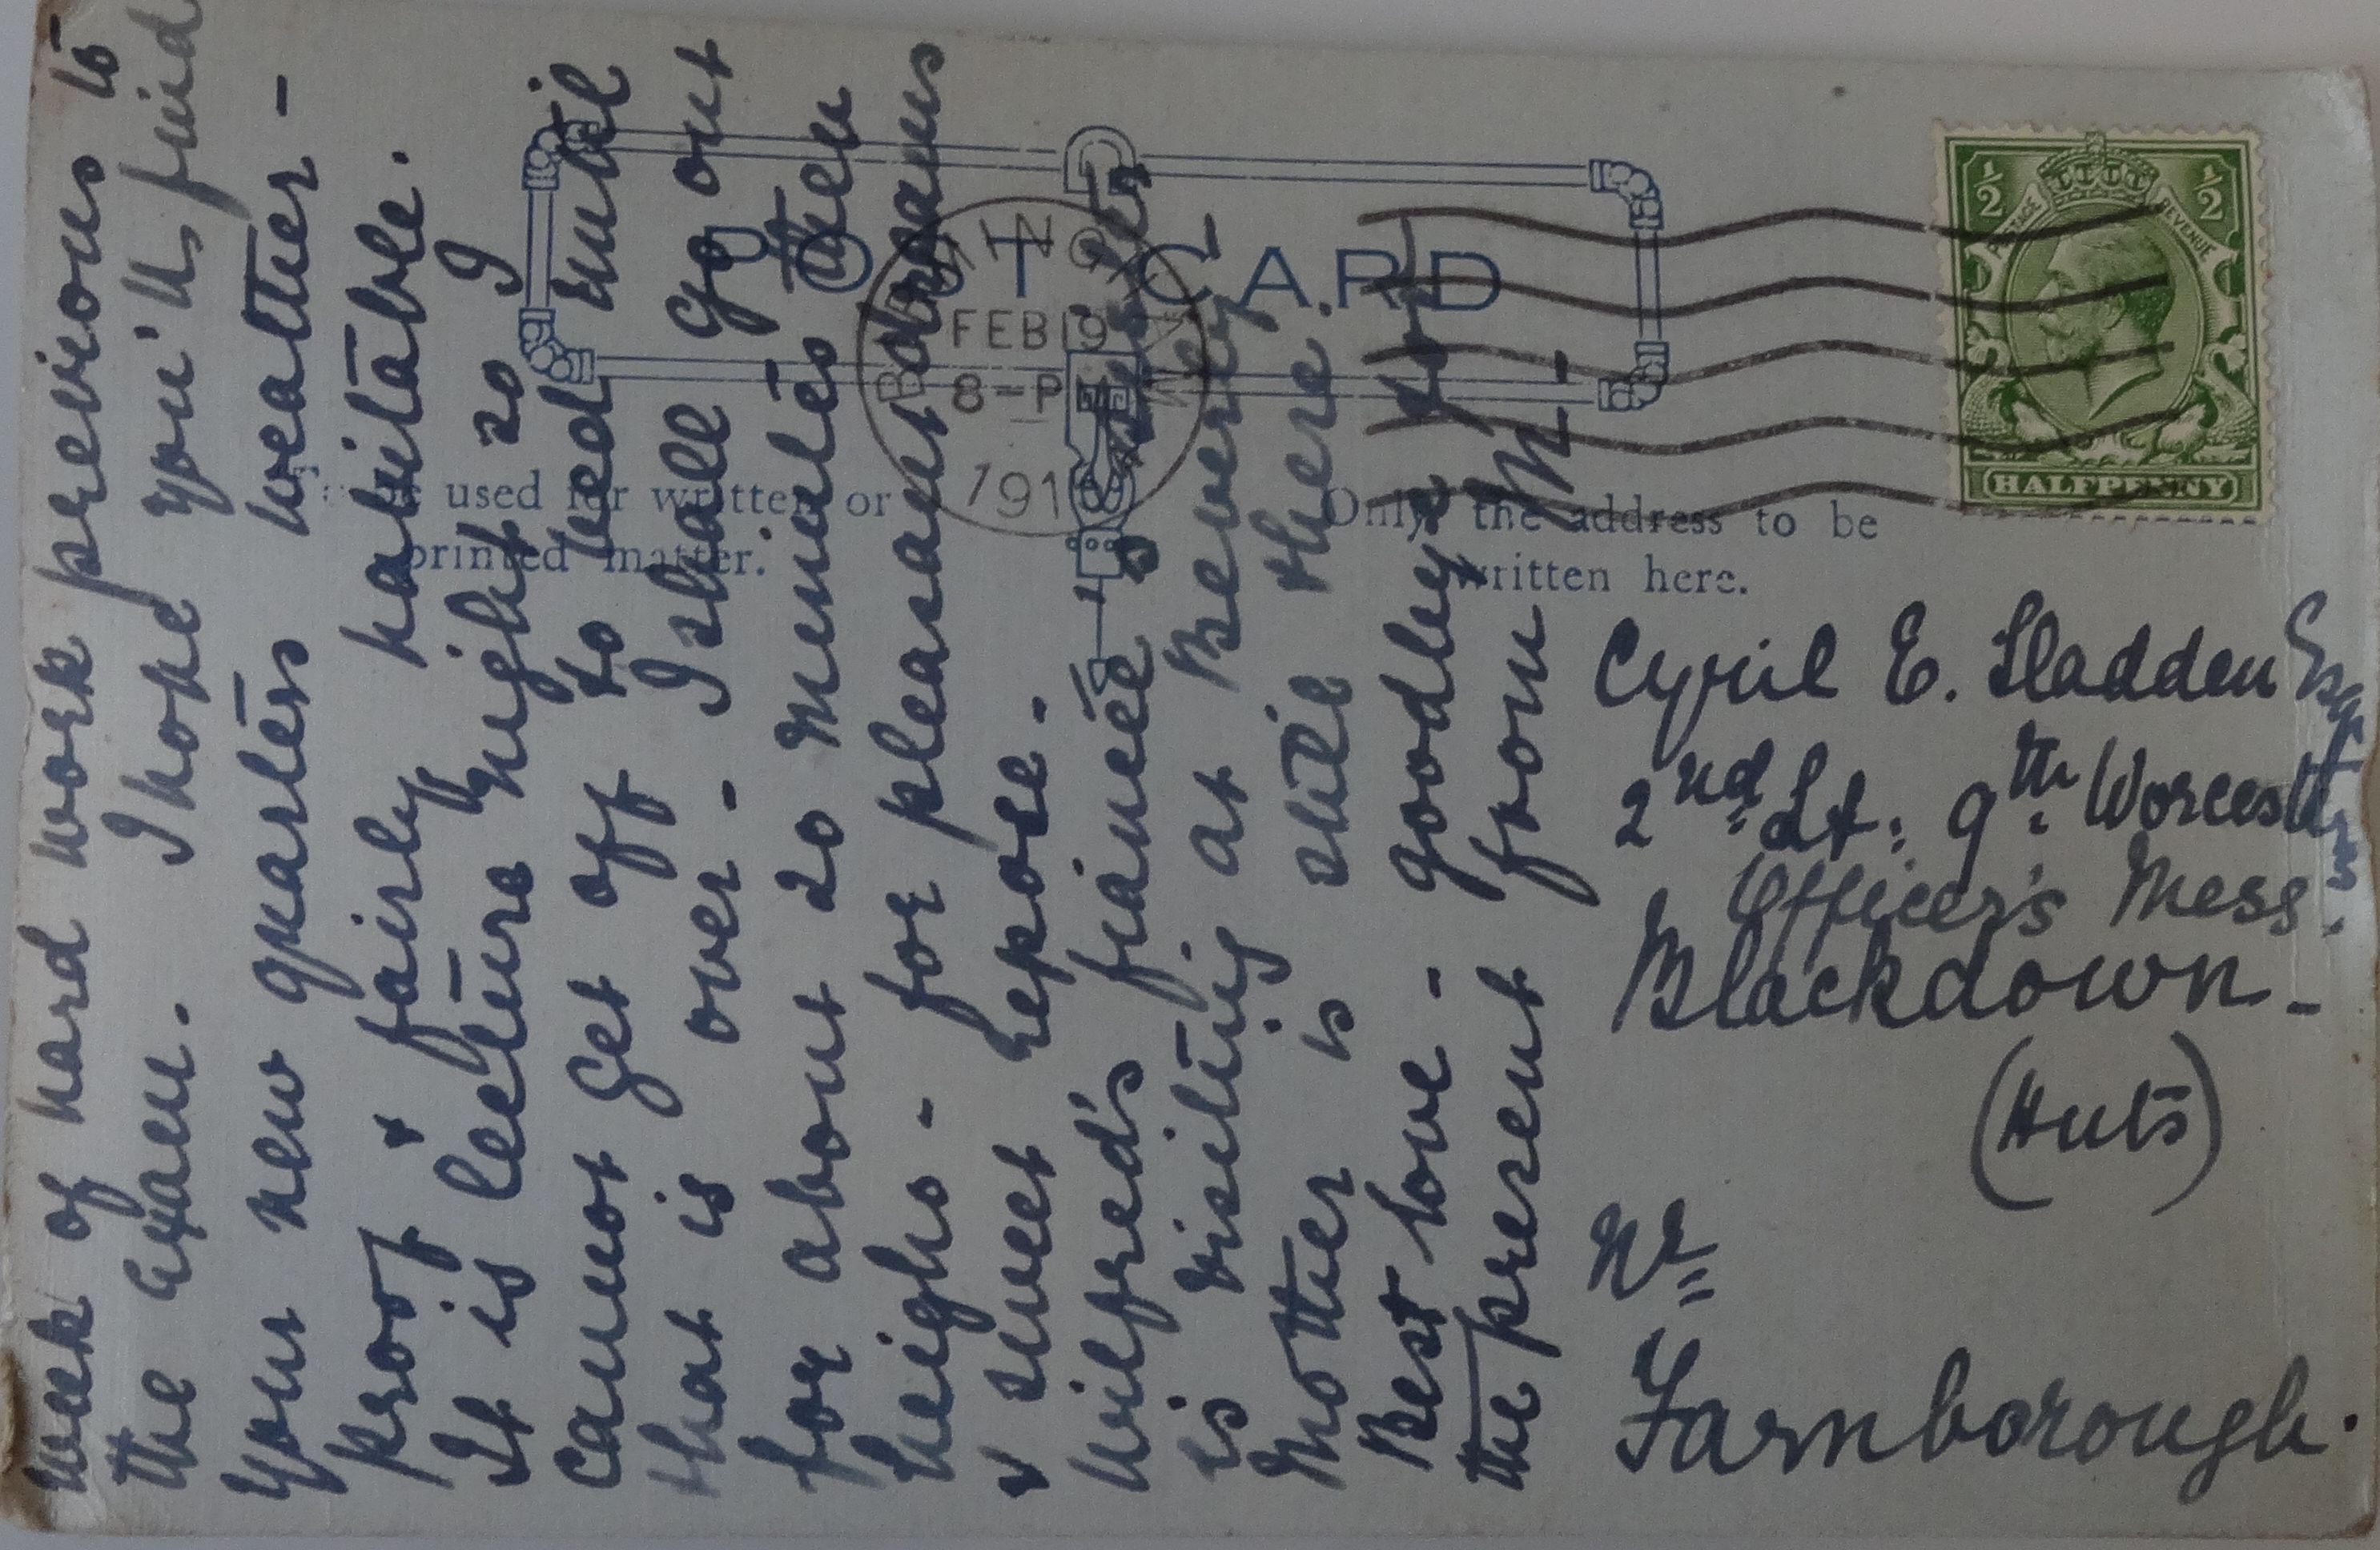 week of hard work previous to
the exam. I hope you'll find
your new quarters weather-
proof & fairly habitable.
It is lecture night so I
cannot get off to bed until
that is over - I shall go out
for about 20 minutes then
heighs - for pleasant dreams
& sweet repose.
Wilfred's fiancée's sister
is visiting at Beverley
Mother is still there.
Best love - goodbye for
the present from M-
POST CARD
BIRMINGHAM
8-PM
FEB 19
191
used for written or
printed matter.
Only the address to be
written here.
½ ½
POSTAGE REVENUE
HALFPENNY
Cyril E. Sladden Esq
2nd Lt. 9th Worcesters
Officer's Mess.
Blackdown -
(Huts)
Nr
Farnborough.